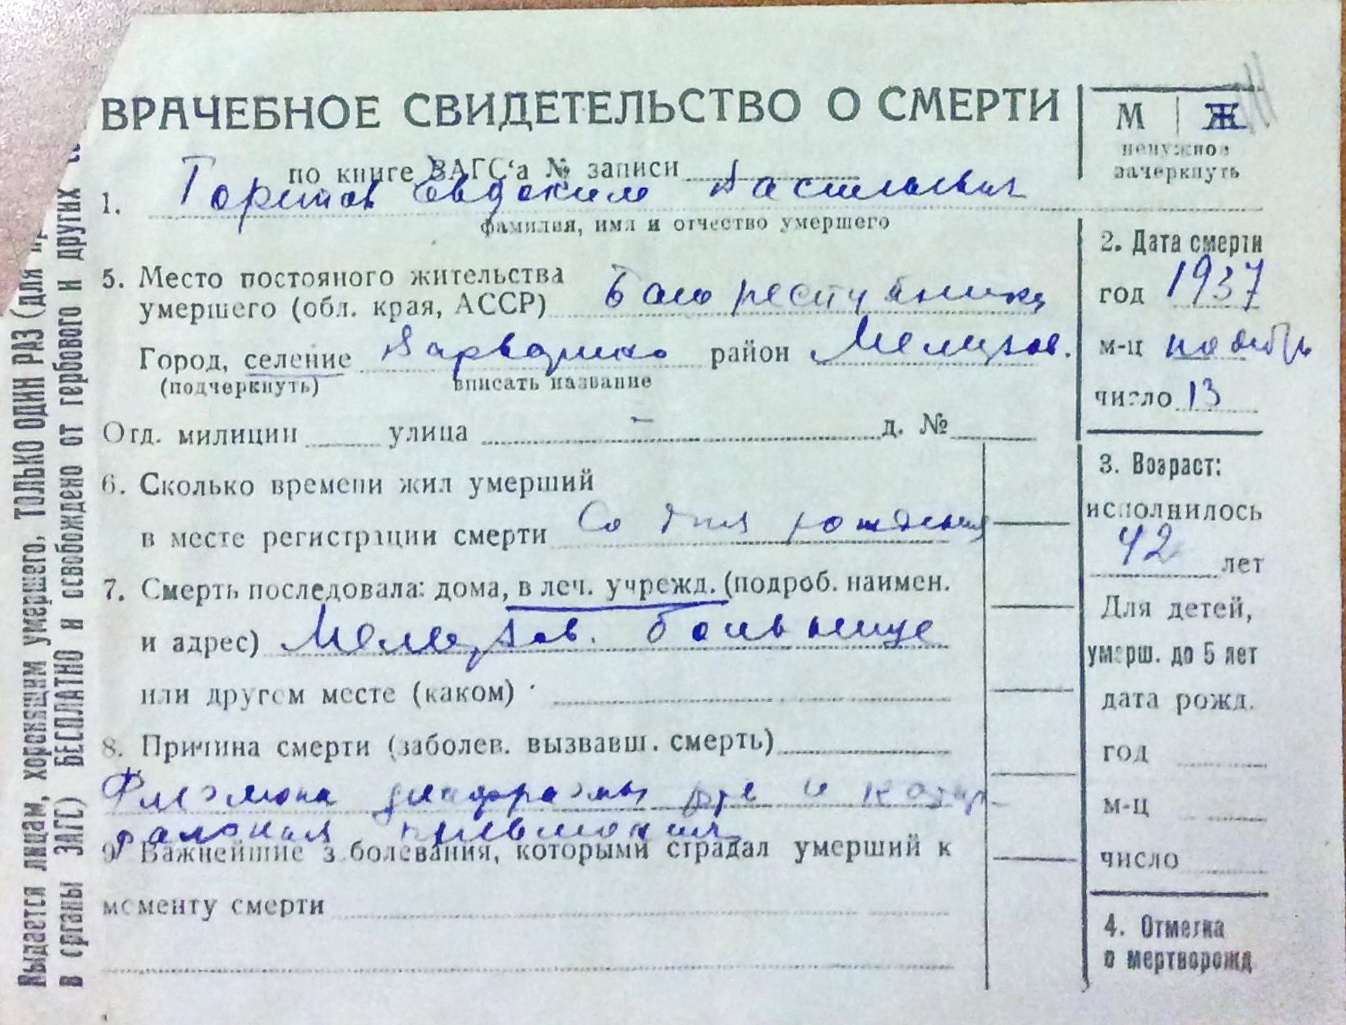 ВРАЧЕБНОЕ СВИДЕТЕЛЬСТВО О СМЕРТИ
М | Ж
ненужное
зачеркнуть
по книге ЗАГС‘а № записи
1. Евдоким Васильевич
фамилия, имя и отчество умершего
2. Дата смерти
год 1937
м-ц ноябрь
число 13
5. Место постояного жительства
умершего (обл. края, АССР) Башреспублика
Город, селение Варварино район Мелеузов.
(подчеркнуть) вписать название
Отд. милиции улица – д. №
3. Возраст:
исполнилось
42 лет
6. Сколько времени жил умерший
в месте регистрации смерти Со дня рождения
7. Смерть последовала: дома, в леч. учрежд. (подроб. наимен.
и адрес) Мелеузов. больнице
или другом месте (каком)
Для детей,
умерш. до 5 лет
дата рожд.
год
м-ц
число
8. Причина смерти (заболев. вызвавш. смерть)
Флегмона диафрагмы и
пневмония
9. Важнейшие з болевания, которыми страдал умерший к
моменту смерти
4. Отметка
о мертворожд
Выдается лицам, хоронящим умершего, ТОЛЬКО ОДИН РАЗ (для
в органы ЗАГС) БЕСПЛАТНО и освобождено от гербового и других